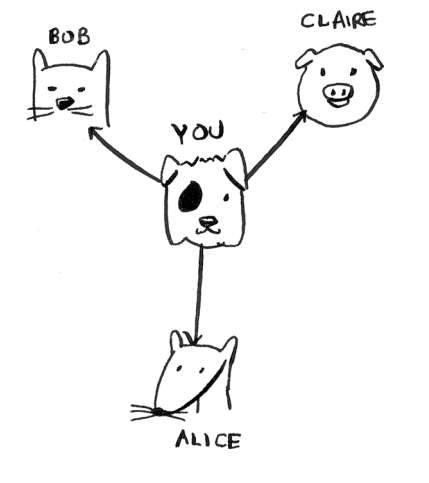 BOB
CLAIRE
YOU
ALICE